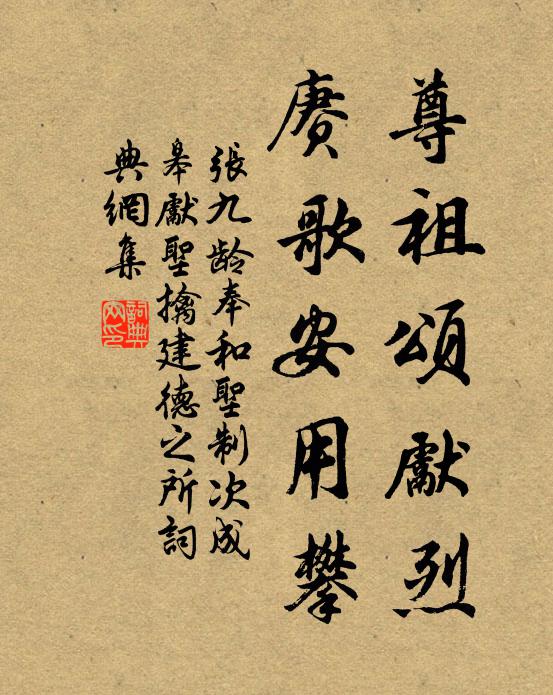 尊祖頌獻烈
赓歌安用攀
張九龄奉和聖制次成
皋獻聖擒建德之所詞
典網集
詞典
网印